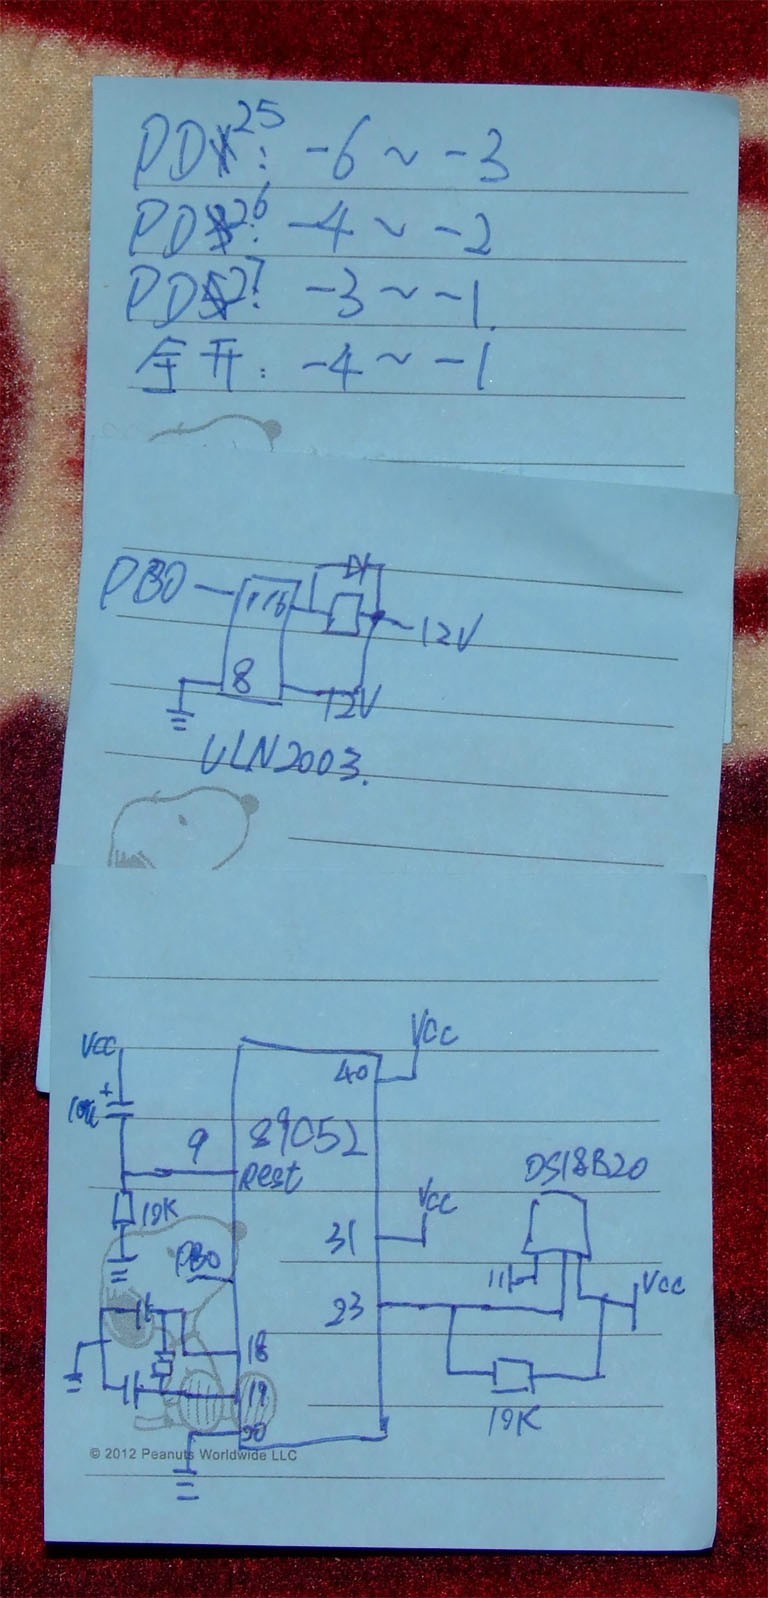 PD25: -6 ~ -3
PD26: -4 ~ -2
PD27: -3 ~ -1
全开: -4 ~ -1
PB0
1 16
12V
8
12V
ULN2003.
VCC
VCC
40
+
10u
9
89C52
Rest
DS18B20
10K
VCC
31
PB0
VCC
23
18
19
10K
20
© 2012 Peanuts Worldwide LLC